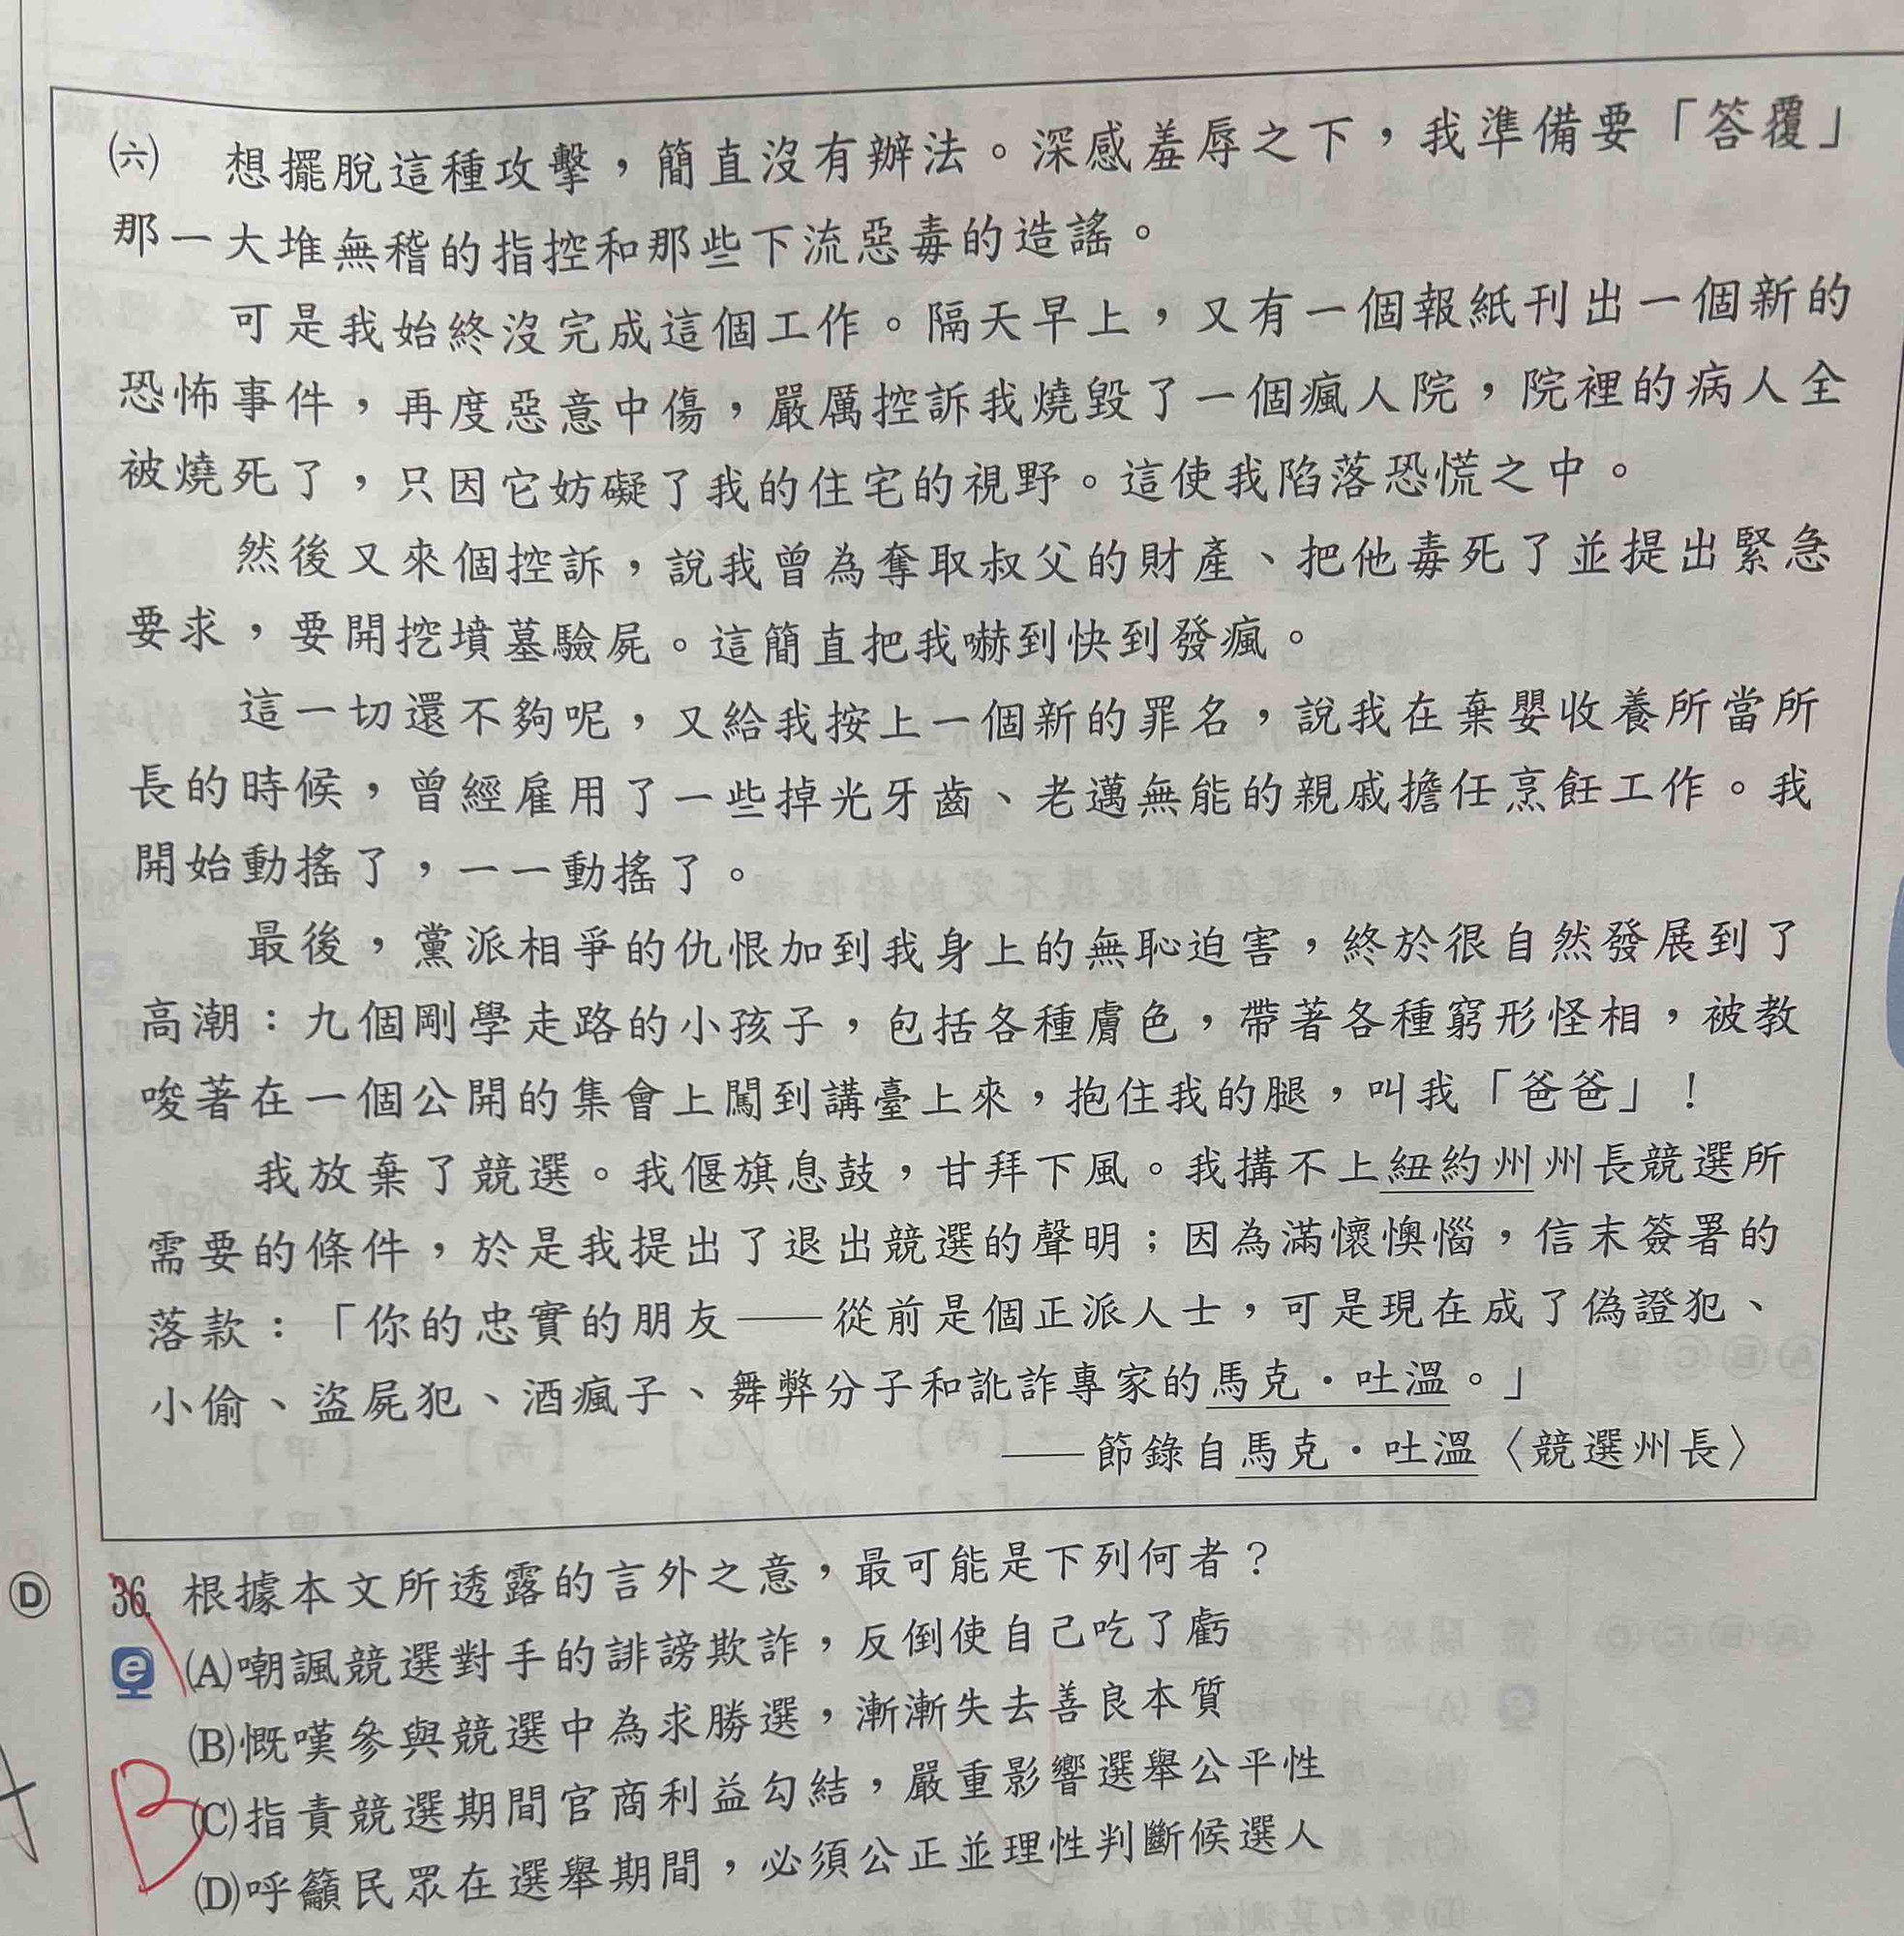 ㈥　想擺脫這種攻擊，簡直沒有辦法。深感羞辱之下，我準備要「答覆」
那一大堆無稽的指控和那些下流惡毒的造謠。
可是我始終沒完成這個工作。隔天早上，又有一個報紙刊出一個新的
恐怖事件，再度惡意中傷，嚴厲控訴我燒毀了一個瘋人院，院裡的病人全
被燒死了，只因它妨礙了我的住宅的視野。這使我陷落恐慌之中。
然後又來個控訴，說我曾為奪取叔父的財產、把他毒死了並提出緊急
要求，要開挖墳墓驗屍。這簡直把我嚇到快到發瘋。
這一切還不夠呢，又給我按上一個新的罪名，說我在棄嬰收養所當所
長的時候，曾經雇用了一些掉光牙齒、老邁無能的親戚擔任烹飪工作。我
開始動搖了，一一動搖了。
最後，黨派相爭的仇恨加到我身上的無恥迫害，終於很自然發展到了
高潮：九個剛學走路的小孩子，包括各種膚色，帶著各種窮形怪相，被教
唆著在一個公開的集會上闖到講臺上來，抱住我的腿，叫我「爸爸」！
我放棄了競選。我偃旗息鼓，甘拜下風。我搆不上紐約州州長競選所
需要的條件，於是我提出了退出競選的聲明；因為滿懷懊惱，信末簽署的
落款：「你的忠實的朋友——從前是個正派人士，可是現在成了偽證犯、
小偷、盜屍犯、酒瘋子、舞弊分子和訛詐專家的馬克・吐溫。」
——節錄自馬克・吐溫〈競選州長〉
Ⓓ 36. 根據本文所透露的言外之意，最可能是下列何者？
(A)嘲諷競選對手的誹謗欺詐，反倒使自己吃了虧
(B)慨嘆參與競選中為求勝選，漸漸失去善良本質
B (C)指責競選期間官商利益勾結，嚴重影響選舉公平性
(D)呼籲民眾在選舉期間，必須公正並理性判斷候選人